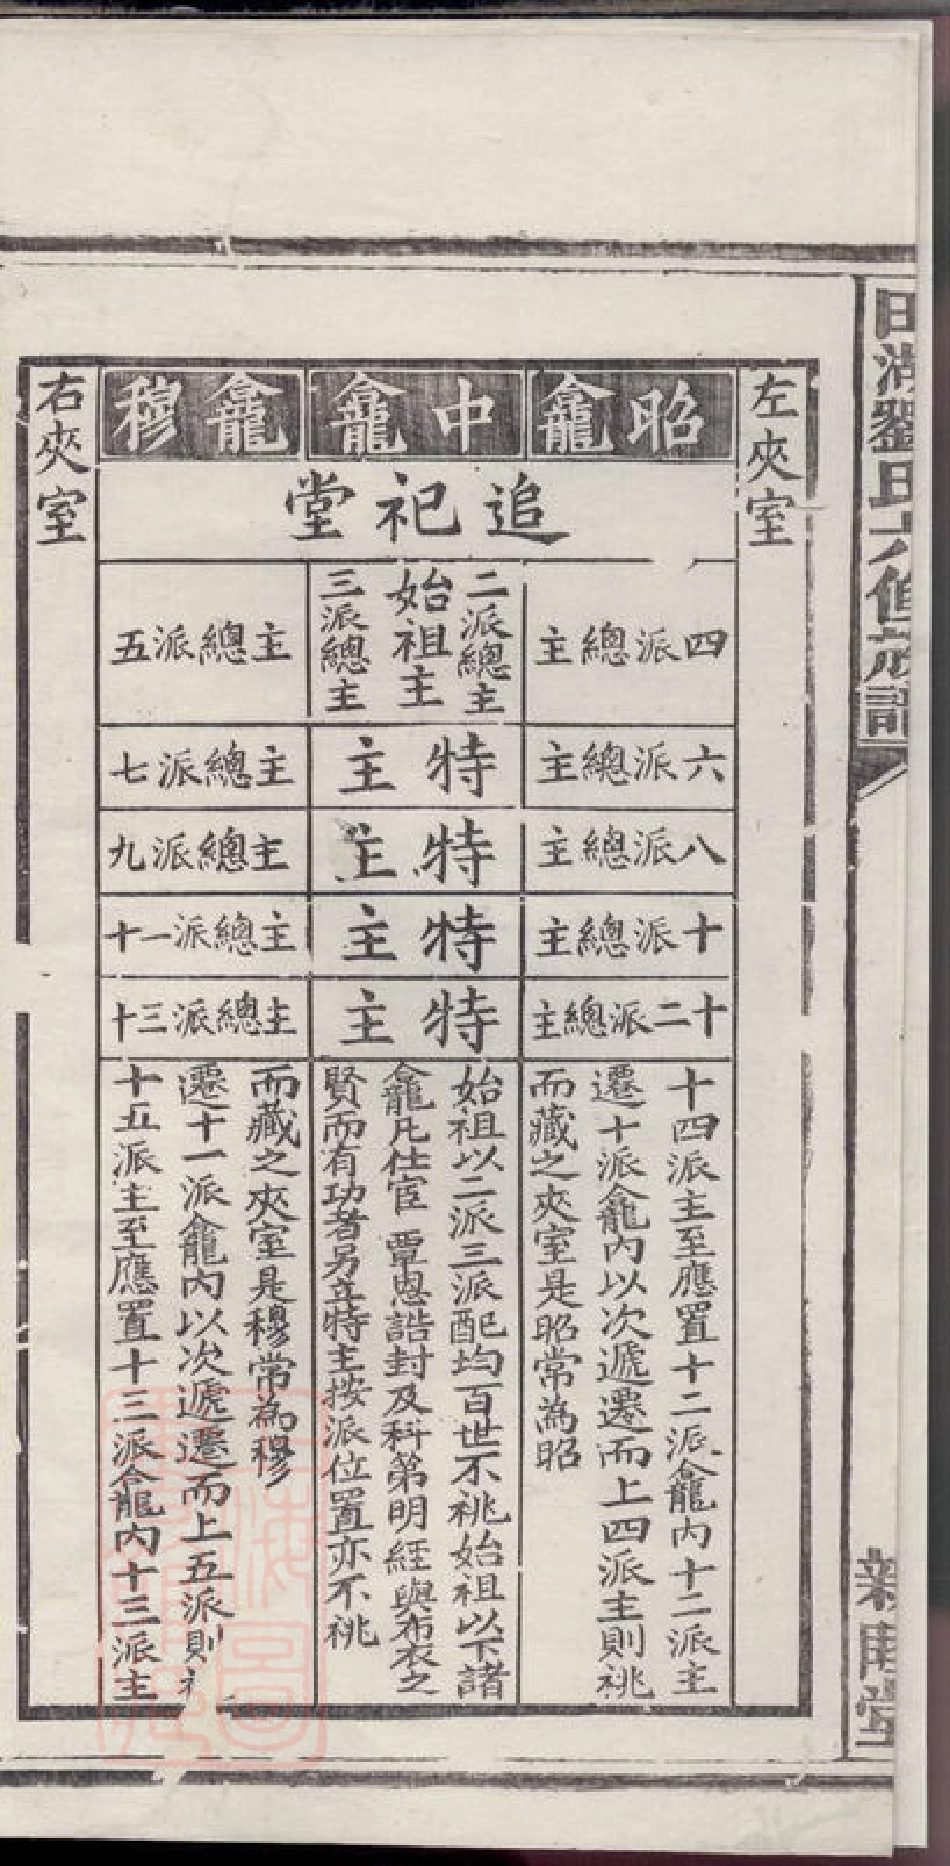 劉氏六修族譜
左夾室
昭龕
中龕
穆龕
右夾室
追祀堂
四派總主
二派總主
始祖主
三派總主
五派總主
六派總主
特主
七派總主
八派總主
特主
九派總主
十派總主
特主
十一派總主
十二派總主
特主
十三派總主
十四派主至應置十二派龕內十二派主
遷十派龕內以次遞遷而上四派主則祧
而藏之夾室是昭常為昭
始祖以二派三派配均百世不祧始祖以下諸
龕凡仕宦 覃恩誥封及科第明經與布衣之
賢而有功者另立特主按派位置亦不祧
十五派主至應置十三派龕內十三派主
遷十一派龕內以次遞遷而上五派則
而藏之夾室是穆常為穆